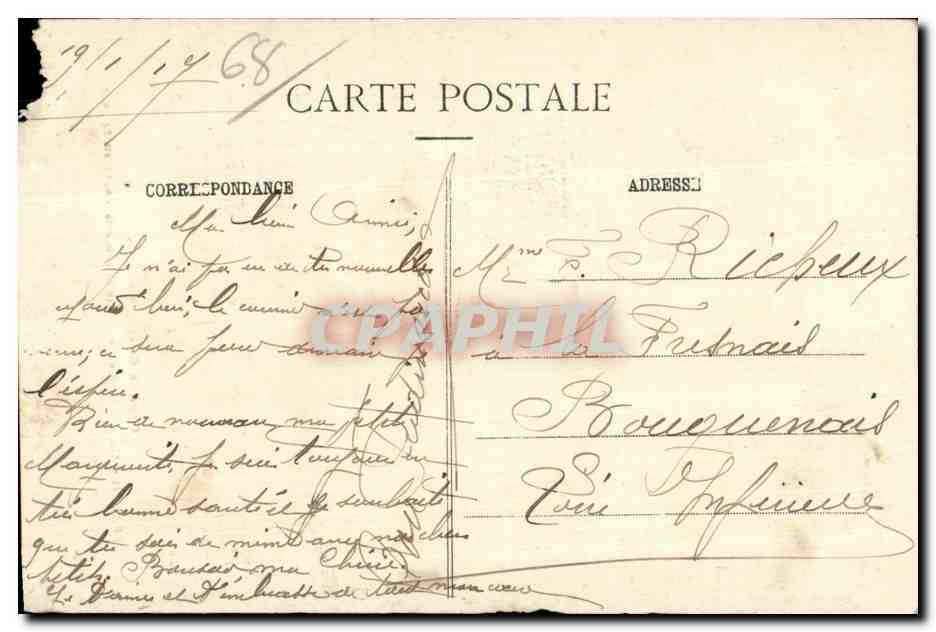 19/1/17 68/
CARTE POSTALE
CORRESPONDANCE
Ma bien Aimée,
Je n'ai pas eu de tes nouvelles
le courrier n'est pas
ce sera pour demain je
l'espère.
Rien de nouveau, ma petite
Marguerite, je suis toujours en
très bonne santé et je souhaite
que tu sois de même avec nos chers
petits. Bonsoir ma Chérie.
Je t'aime et t'embrasse de tout mon cœur
ADRESSE
Mme F. Richeux
à la Fresnais
Bouguenais
Loire Inférieure
CPAPHIL